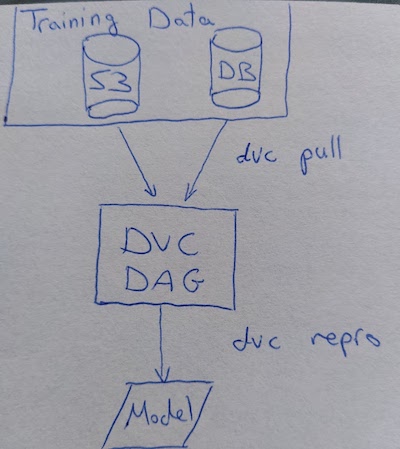 Training Data
S3
DB
dvc pull
DVC
DAG
dvc repro
Model